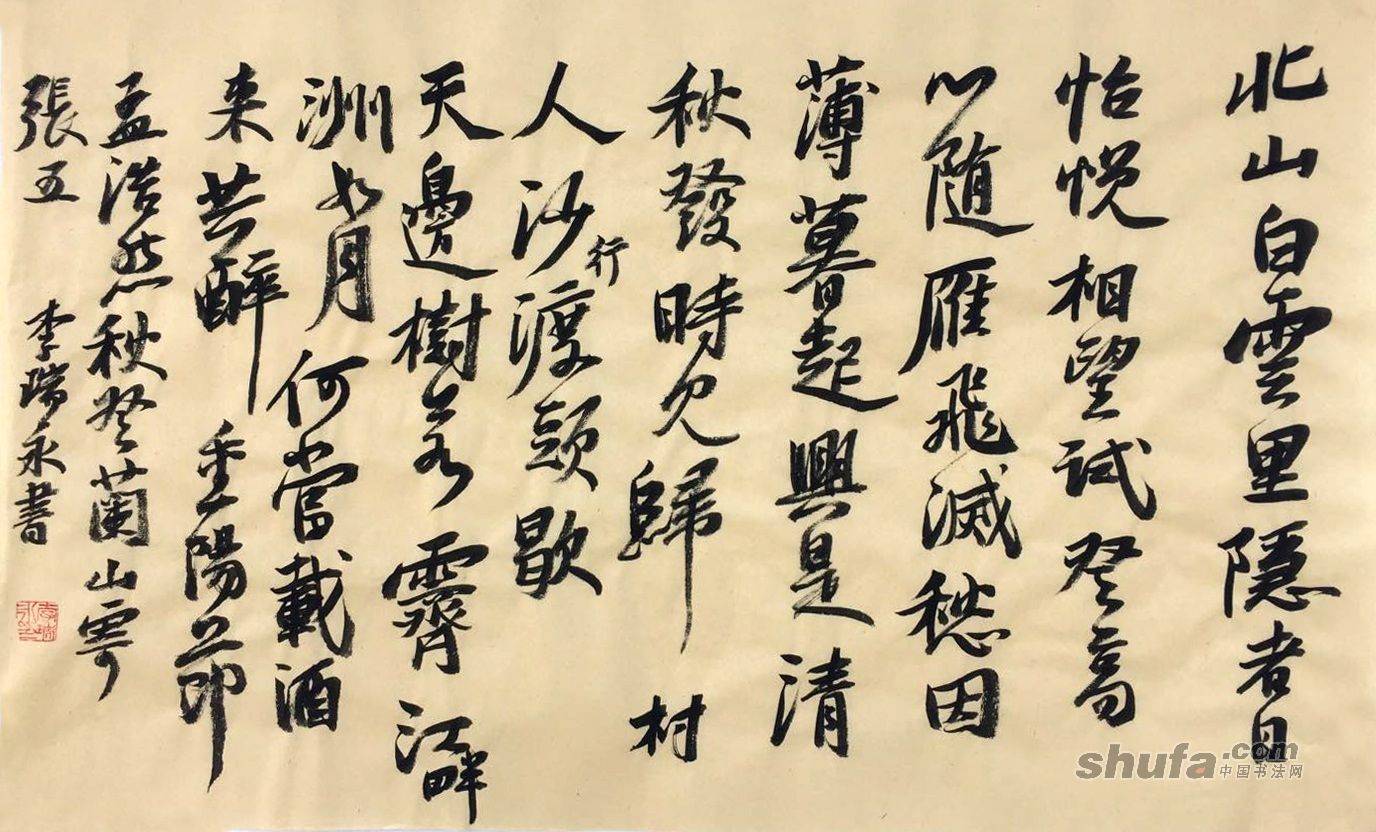 北山白雲里隱者自
怡悦相望試登高
心随雁飛滅愁因
薄暮起興是清
秋發時見歸村
人沙行渡頭歇
天邊樹若霽江畔
洲如月何當載酒
来共醉重陽節
孟浩然秋登蘭山寄
張五 李瑞永書
shufa.com
中国书法网